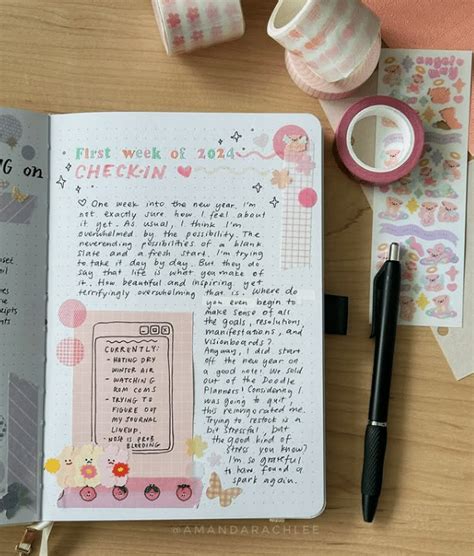 NG on
First week of 2024
CHECK-IN
One week into the new year. I'm
not exactly sure how I feel about
it yet. As usual, I think I'm
overwhelmed by the possibility. The
neverending possibilities of a blank
slate and a fresh start. I'm trying
to take it day by day. But they do
say that life is what you make of
it. How beautiful and inspiring, yet
terrifyingly overwhelming that is. Where do
you even begin to
make sense of all
the goals, resolutions,
manifestations, and
visionboards?
Anyway, I did start
off the new year on
a good note! We sold
out of the Doodle
Planners! Considering I
was going to quit,
this reinvigorated me.
Trying to restock is a
bit stressful, but
the good kind of
stress you know?
I'm so grateful
to have found a
spark again.
CURRENTLY:
- HATING DRY
WINTER AIR
- WATCHING
ROM COMS
- TRYING TO
FIGURE OUT
MY JOURNAL
LINEUP.
- NOSE IS PROB
BLEEDING
angel
@AMANDARACHLEE